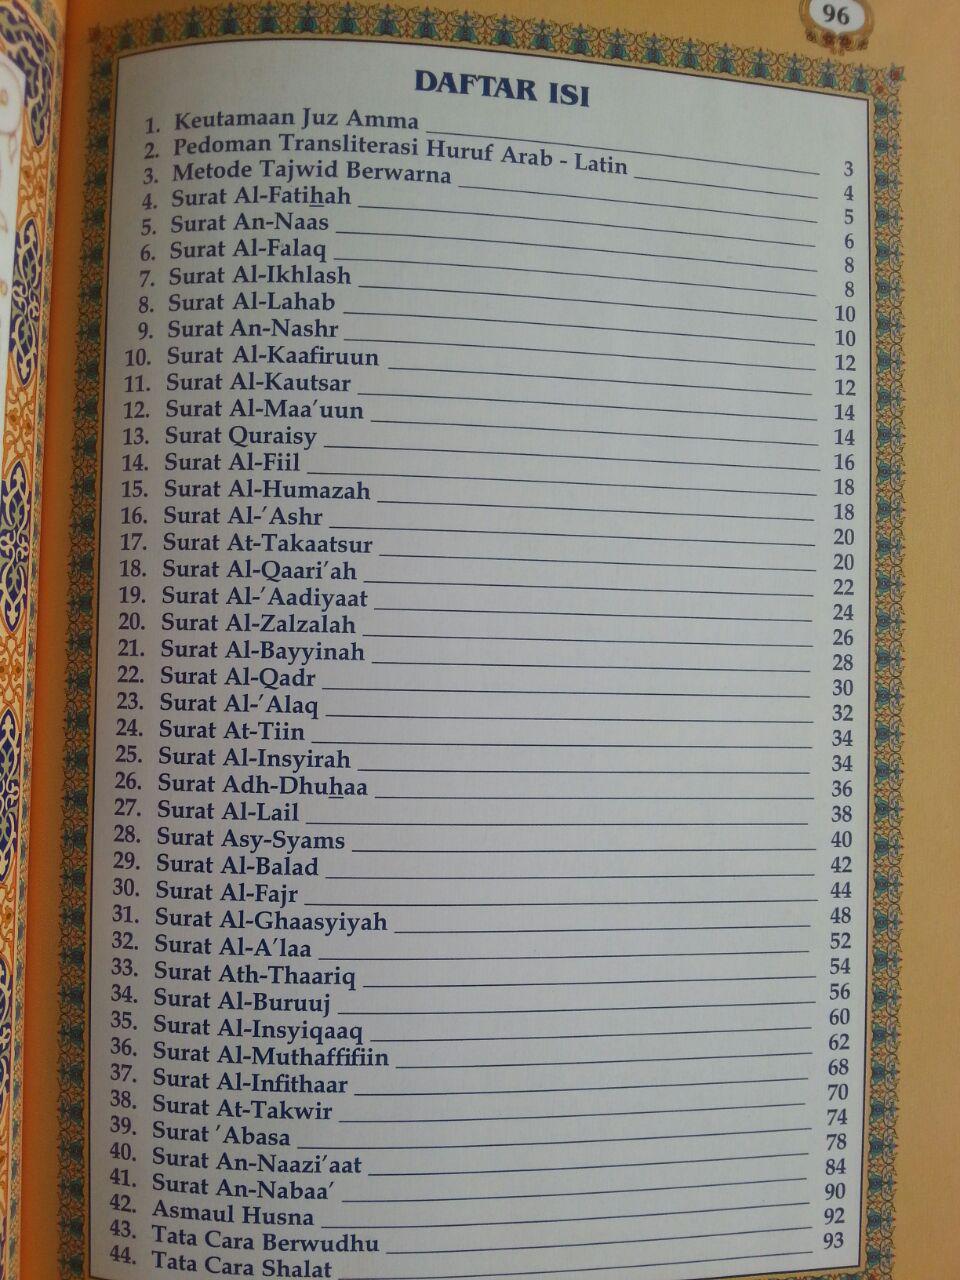 96
DAFTAR ISI
1. Keutamaan Juz Amma 3
2. Pedoman Transliterasi Huruf Arab - Latin 4
3. Metode Tajwid Berwarna 5
4. Surat Al-Fatihah 6
5. Surat An-Naas 8
6. Surat Al-Falaq 8
7. Surat Al-Ikhlash 10
8. Surat Al-Lahab 10
9. Surat An-Nashr 12
10. Surat Al-Kaafiruun 12
11. Surat Al-Kautsar 14
12. Surat Al-Maa’uun 14
13. Surat Quraisy 16
14. Surat Al-Fiil 18
15. Surat Al-Humazah 18
16. Surat Al-’Ashr 20
17. Surat At-Takaatsur 20
18. Surat Al-Qaari’ah 22
19. Surat Al-’Aadiyaat 24
20. Surat Al-Zalzalah 26
21. Surat Al-Bayyinah 28
22. Surat Al-Qadr 30
23. Surat Al-’Alaq 32
24. Surat At-Tiin 34
25. Surat Al-Insyirah 34
26. Surat Adh-Dhuhaa 36
27. Surat Al-Lail 38
28. Surat Asy-Syams 40
29. Surat Al-Balad 42
30. Surat Al-Fajr 44
31. Surat Al-Ghaasyiyah 48
32. Surat Al-A’laa 52
33. Surat Ath-Thaariq 54
34. Surat Al-Buruuj 56
35. Surat Al-Insyiqaaq 60
36. Surat Al-Muthaffifiin 62
37. Surat Al-Infithaar 68
38. Surat At-Takwir 70
39. Surat ’Abasa 74
40. Surat An-Naazi’aat 78
41. Surat An-Nabaa’ 84
42. Asmaul Husna 90
43. Tata Cara Berwudhu 92
44. Tata Cara Shalat 93